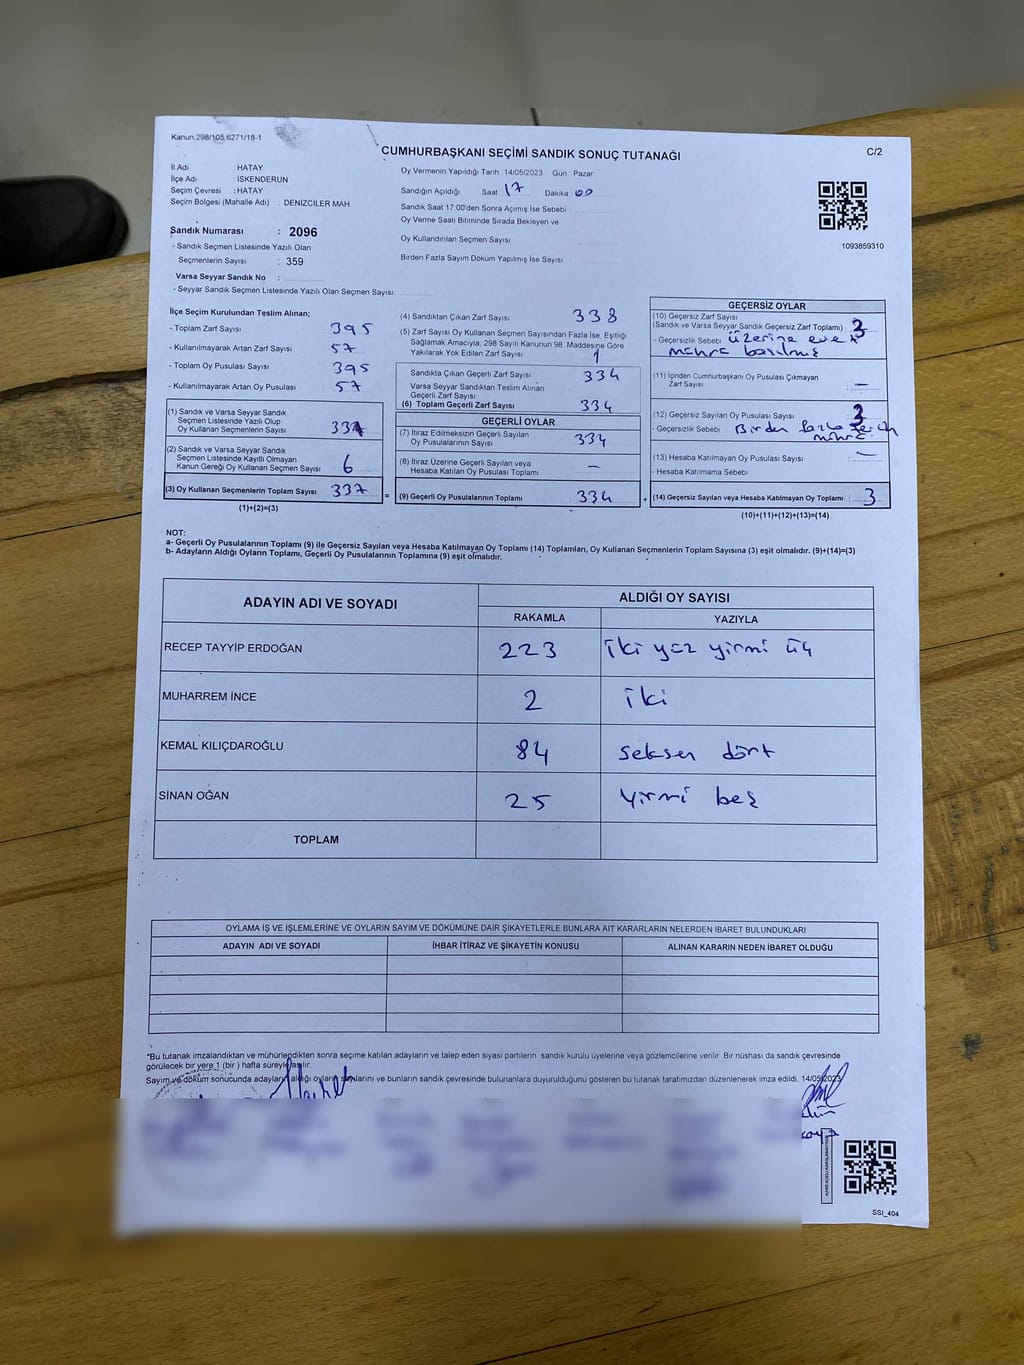 Kanun:298/105,6271/18-1
CUMHURBAŞKANI SEÇİMİ SANDIK SONUÇ TUTANAĞI
C/2
İl Adı : HATAY
İlçe Adı : İSKENDERUN
Seçim Çevresi : HATAY
Seçim Bölgesi (Mahalle Adı) : DENİZCİLER MAH
Sandık Numarası : 2096
- Sandık Seçmen Listesinde Yazılı Olan
Seçmenlerin Sayısı : 359
Varsa Seyyar Sandık No :
- Seyyar Sandık Seçmen Listesinde Yazılı Olan Seçmen Sayısı:
Oy Vermenin Yapıldığı Tarih 14/05/2023 Gün : Pazar
Sandığın Açıldığı Saat 17 Dakika 00
Sandık Saat 17:00'den Sonra Açımış İse Sebebi
Oy Verme Saati Bitiminde Sırada Bekleyen ve
Oy Kullandırılan Seçmen Sayısı
Birden Fazla Sayım Döküm Yapılmış İse Sayısı
1093859310
İlçe Seçim Kurulundan Teslim Alınan;
- Toplam Zarf Sayısı 395
- Kullanılmayarak Artan Zarf Sayısı 57
- Toplam Oy Pusulası Sayısı 395
- Kullanılmayarak Artan Oy Pusulası 57
(1) Sandık ve Varsa Seyyar Sandık
Seçmen Listesinde Yazılı Olup
Oy Kullanan Seçmenlerin Sayısı
(2) Sandık ve Varsa Seyyar Sandık
Seçmen Listesinde Kayıtlı Olmayan
Kanun Gereği Oy Kullanan Seçmen Sayısı 6
(3) Oy Kullanan Seçmenlerin Toplam Sayısı 337 =
(1)+(2)=(3)
(4) Sandıktan Çıkan Zarf Sayısı 338
(5) Zarf Sayısı Oy Kullanan Seçmen Sayısından Fazla İse, Eşitliği
Sağlamak Amacıyla, 298 Sayılı Kanunun 98. Maddesine Göre
Yakılarak Yok Edilen Zarf Sayısı 1
Sandıkta Çıkan Geçerli Zarf Sayısı 334
Varsa Seyyar Sandıktan Teslim Alınan
Geçerli Zarf Sayısı
(6) Toplam Geçerli Zarf Sayısı 334
GEÇERLİ OYLAR
(7) İtiraz Edilmeksizin Geçerli Sayılan
Oy Pusulalarının Sayısı 334
(8) İtiraz Üzerine Geçerli Sayılan veya
Hesaba Katılan Oy Pusulası Toplamı –
(9) Geçerli Oy Pusulalarının Toplamı 334 +
GEÇERSİZ OYLAR
(10) Geçersiz Zarf Sayısı
(Sandık ve Varsa Seyyar Sandık Geçersiz Zarf Toplamı) :
- Geçersizlik Sebebi üzerine evet
mühre basılmış
(11) İçinden Cumhurbaşkanı Oy Pusulası Çıkmayan
Zarf Sayısı : –
(12) Geçersiz Sayılan Oy Pusulası Sayısı 3
- Geçersizlik Sebebi : Birden fazla tercih
mühre
(13) Hesaba Katılmayan Oy Pusulası Sayısı –
- Hesaba Katılmama Sebebi
(14) Geçersiz Sayılan veya Hesaba Katılmayan Oy Toplamı : 3
(10)+(11)+(12)+(13)=(14)
NOT:
a- Geçerli Oy Pusulalarının Toplamı (9) ile Geçersiz Sayılan veya Hesaba Katılmayan Oy Toplamı (14) Toplamları, Oy Kullanan Seçmenlerin Toplam Sayısına (3) eşit olmalıdır. (9)+(14)=(3)
b- Adayların Aldığı Oyların Toplamı, Geçerli Oy Pusulalarının Toplamına (9) eşit olmalıdır.
ADAYIN ADI VE SOYADI
ALDIĞI OY SAYISI
RAKAMLA YAZIYLA
RECEP TAYYİP ERDOĞAN 223 iki yüz yirmi üç
MUHARREM İNCE 2 iki
KEMAL KILIÇDAROĞLU 84 seksen dört
SİNAN OĞAN 25 yirmi beş
TOPLAM
OYLAMA İŞ VE İŞLEMLERİNE VE OYLARIN SAYIM VE DÖKÜMÜNE DAİR ŞİKAYETLERLE BUNLARA AİT KARARLARIN NELERDEN İBARET BULUNDUKLARI
ADAYIN ADI VE SOYADI İHBAR İTİRAZ VE ŞİKAYETİN KONUSU ALINAN KARARIN NEDEN İBARET OLDUĞU
*Bu tutanak imzalandıktan ve mühürlendikten sonra seçime katılan adayların ve talep eden siyasi partilerin sandık kurulu üyelerine veya gözlemcilerine verilir. Bir nüshası da sandık çevresinde
görülecek bir yere 1 (bir ) hafta süreyle asılır.
Sayım ve döküm sonucunda adayların aldığı oyların sayılarını ve bunların sandık çevresinde bulunanlara duyurulduğunu gösteren bu tutanak tarafımızdan düzenlenerek imza edildi. 14/05/2023
SSI_404